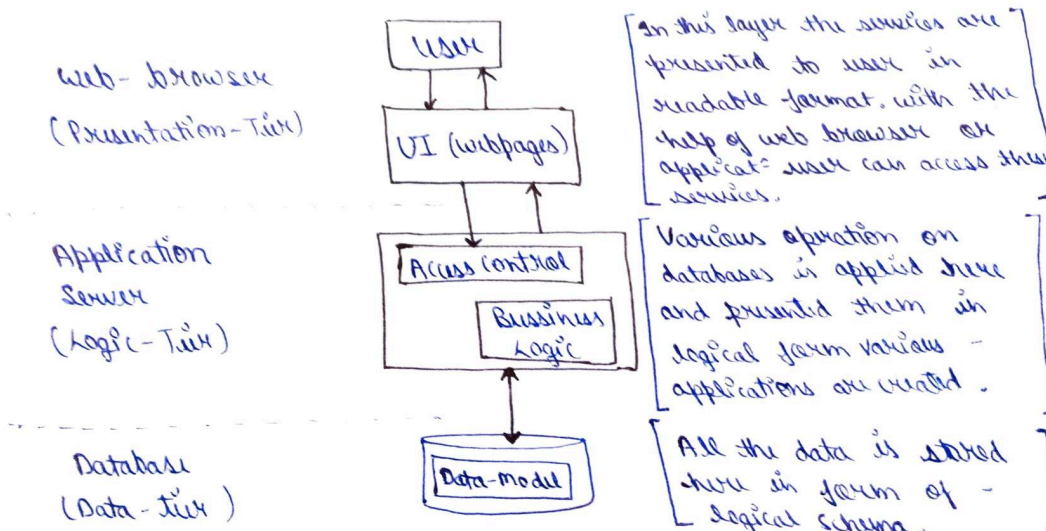 User
web-browser
(Presentation-Tier)
UI (webpages)
In this layer the services are
presented to user in
readable format. with the
help of web browser or
applicat= user can access these
services.
Application
Server
(Logic-Tier)
Access control
Bussiness
Logic
Various operation on
databases is applied here
and presented them in
logical form various -
applications are created.
Database
(Data-tier)
Data-model
All the data is stored
here in form of -
logical schema.